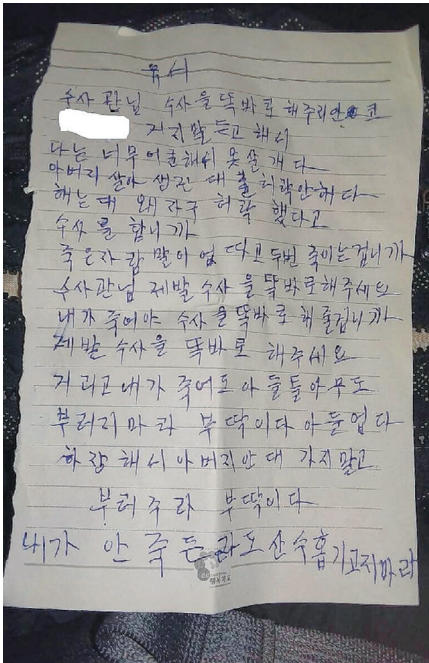 유서
수사관님 수사을 똑바로 해주리안코
거지말 듣고 해서
나는 너무 어굴해서 못살개다
아버리 살아 생전 대출 허락안해다
해는대 왜 자구 허락 했다고
수사을 합니까
죽은자람 말이 업따고 두번 죽이는겁니까
수사관님 제발 수사을 똑바로해주세요
내가 죽어야 수사을 똑바로 해줄겁니까
제발 수사을 똑바로 해주세요
거리고 내가 죽어도 아들들 아무도
부러지마라 부딱이다 아들업다
화장 해서 아버지안대 가지말고
부려주라 부떡이다
내가 안죽든라도 산수홉기고저마라